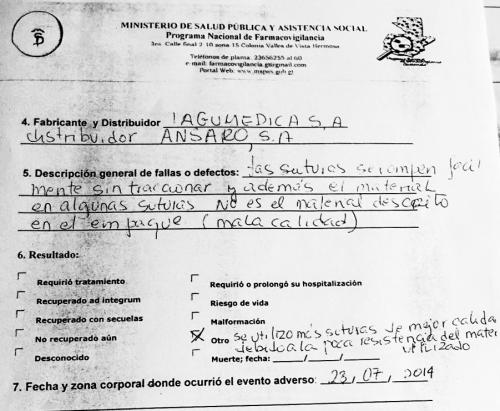 MINISTERIO DE SALUD PÚBLICA Y ASISTENCIA SOCIAL
Programa Nacional de Farmacovigilancia
3ra. Calle final 2-10 zona 15 Colonia Valles de Vista Hermosa
Teléfonos de planta: 23656255 al 60
e-mail: farmacovigilancia.gt@gmail.com
Portal Web: www.mspas.gob.gt
4. Fabricante y Distribuidor LAGUMEDICA S, A
distribuidor ANSARO S.A
5. Descripción general de fallas o defectos: las suturas se rompen facil
mente sin traccionar y además el material
en algunas suturas No es el material descrito
en el empaque (mala calidad)
6. Resultado:
Requirió tratamiento
Requirió o prolongó su hospitalización
Recuperado ad íntegrum
Riesgo de vida
Recuperado con secuelas
Malformación
No recuperado aún
Otro se utilizo más suturas de mejor calidad
debido a la poca resistencia del mater
utilizado
Desconocido
Muerte; fecha: ____/____/____
7. Fecha y zona corporal donde ocurrió el evento adverso: 23, 07, 2014